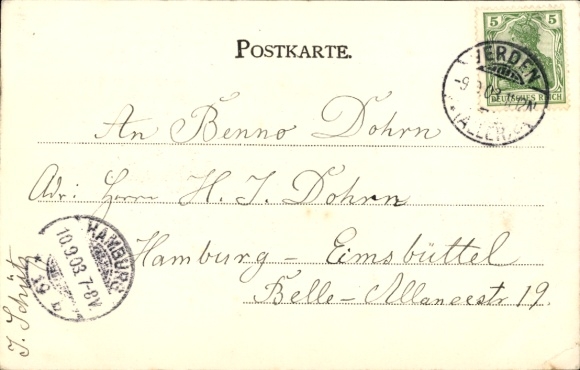 POSTKARTE.
5 5
DEUTSCHES REICH
VERDEN
-9.9.03
(ALLER)
An Benno Dohrn
Adr: Herrn H. J. Dohrn
Hamburg - Eimsbüttel
Belle-Alliancestr 19.
HAMBURG
10.9.03. 7-8V.
* 19 b
J. Schütz